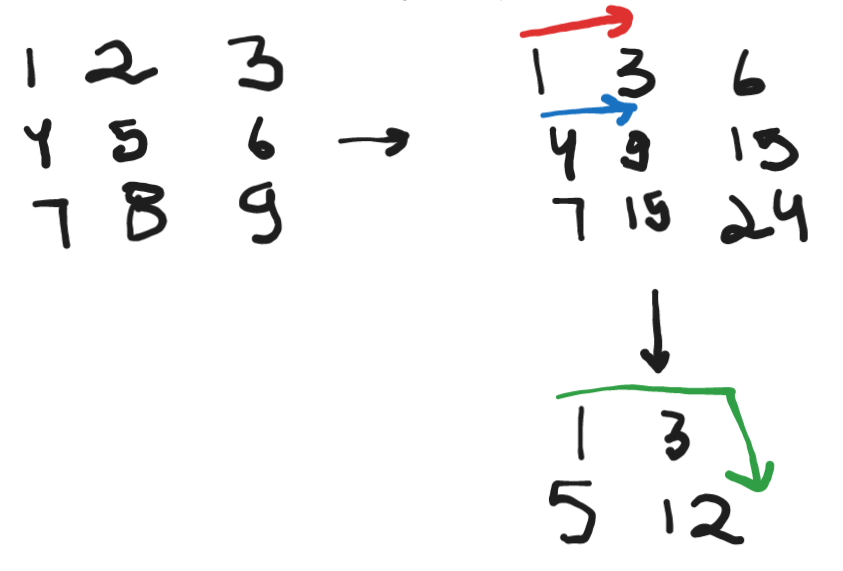 1 2 3
4 5 6
7 8 9
1 3 6
4 9 15
7 15 24
1 3
5 12